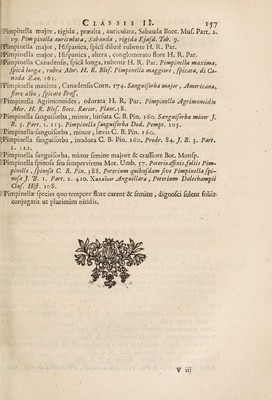 CLASSIS II. 157
Pimpinella major, rigida, præalta, auriculata, Sabauda Bocc. Mus. Part. 2.
19. Pimpinella auriculata, Sabauda, rigida Ejusd. Tab. 9.
Pimpinella major, Hispanica, spicâ dilutè rubente H. R. Par.
Pimpinella major, Hispanica, altera, conglomerato flore H. R. Par.
Pimpinella Canadensis, spicâ longa, rubente H. R. Par. Pimpinella maxima,
spicâ longa, rubra Mor. H. R. Blef. Pimpinella maggiore, spicata, di Ca-
nada Zan. 162.
Pimpinella maxima, Canadensis Corn. 174. Sanguisorba major, Americana,
flore albo, spicato Bross.
Pimpinella Agrimonoides, odorata H. R. Par. Pimpinella Agrimonoidis
Mor. H. R. Blef. Bocc. Rarior. Plant. 58.
Pimpinella sanguisorba, minor, hirsuta C. B. Pin. 160. Sanguisorba minor J.
B. 3. Part. 2. 113. Pimpinella sanguisorba Dod. Pempt. 105.
Pimpinella sanguisorba, minor, lævis C. B. Pin. 160.
Pimpinella sanguisorba, inodora C. B. Pin. 160, Prodr. 84. J. B. 3. Part.
2. 121.
Pimpinella sanguisorba, minor semine majore & crassiore Bot. Monsp.
Pimpinella spinosa seu sempervirens Mor. Umb. 57. Poterio affinis foliis Pimp-
inella, spinosa C. B. Pin. 388. Poterium quibusdam sive Pimpinella spi-
nosa J. B. 1. Part. 2. 410. Anguillara, Poterium Dalechampii
Clus. Hist. 108.
Pimpinellæ species quo tempore flore carent & semine, dignosci solent foliis
conjugatis ut plurimùm nitidis.
V iij